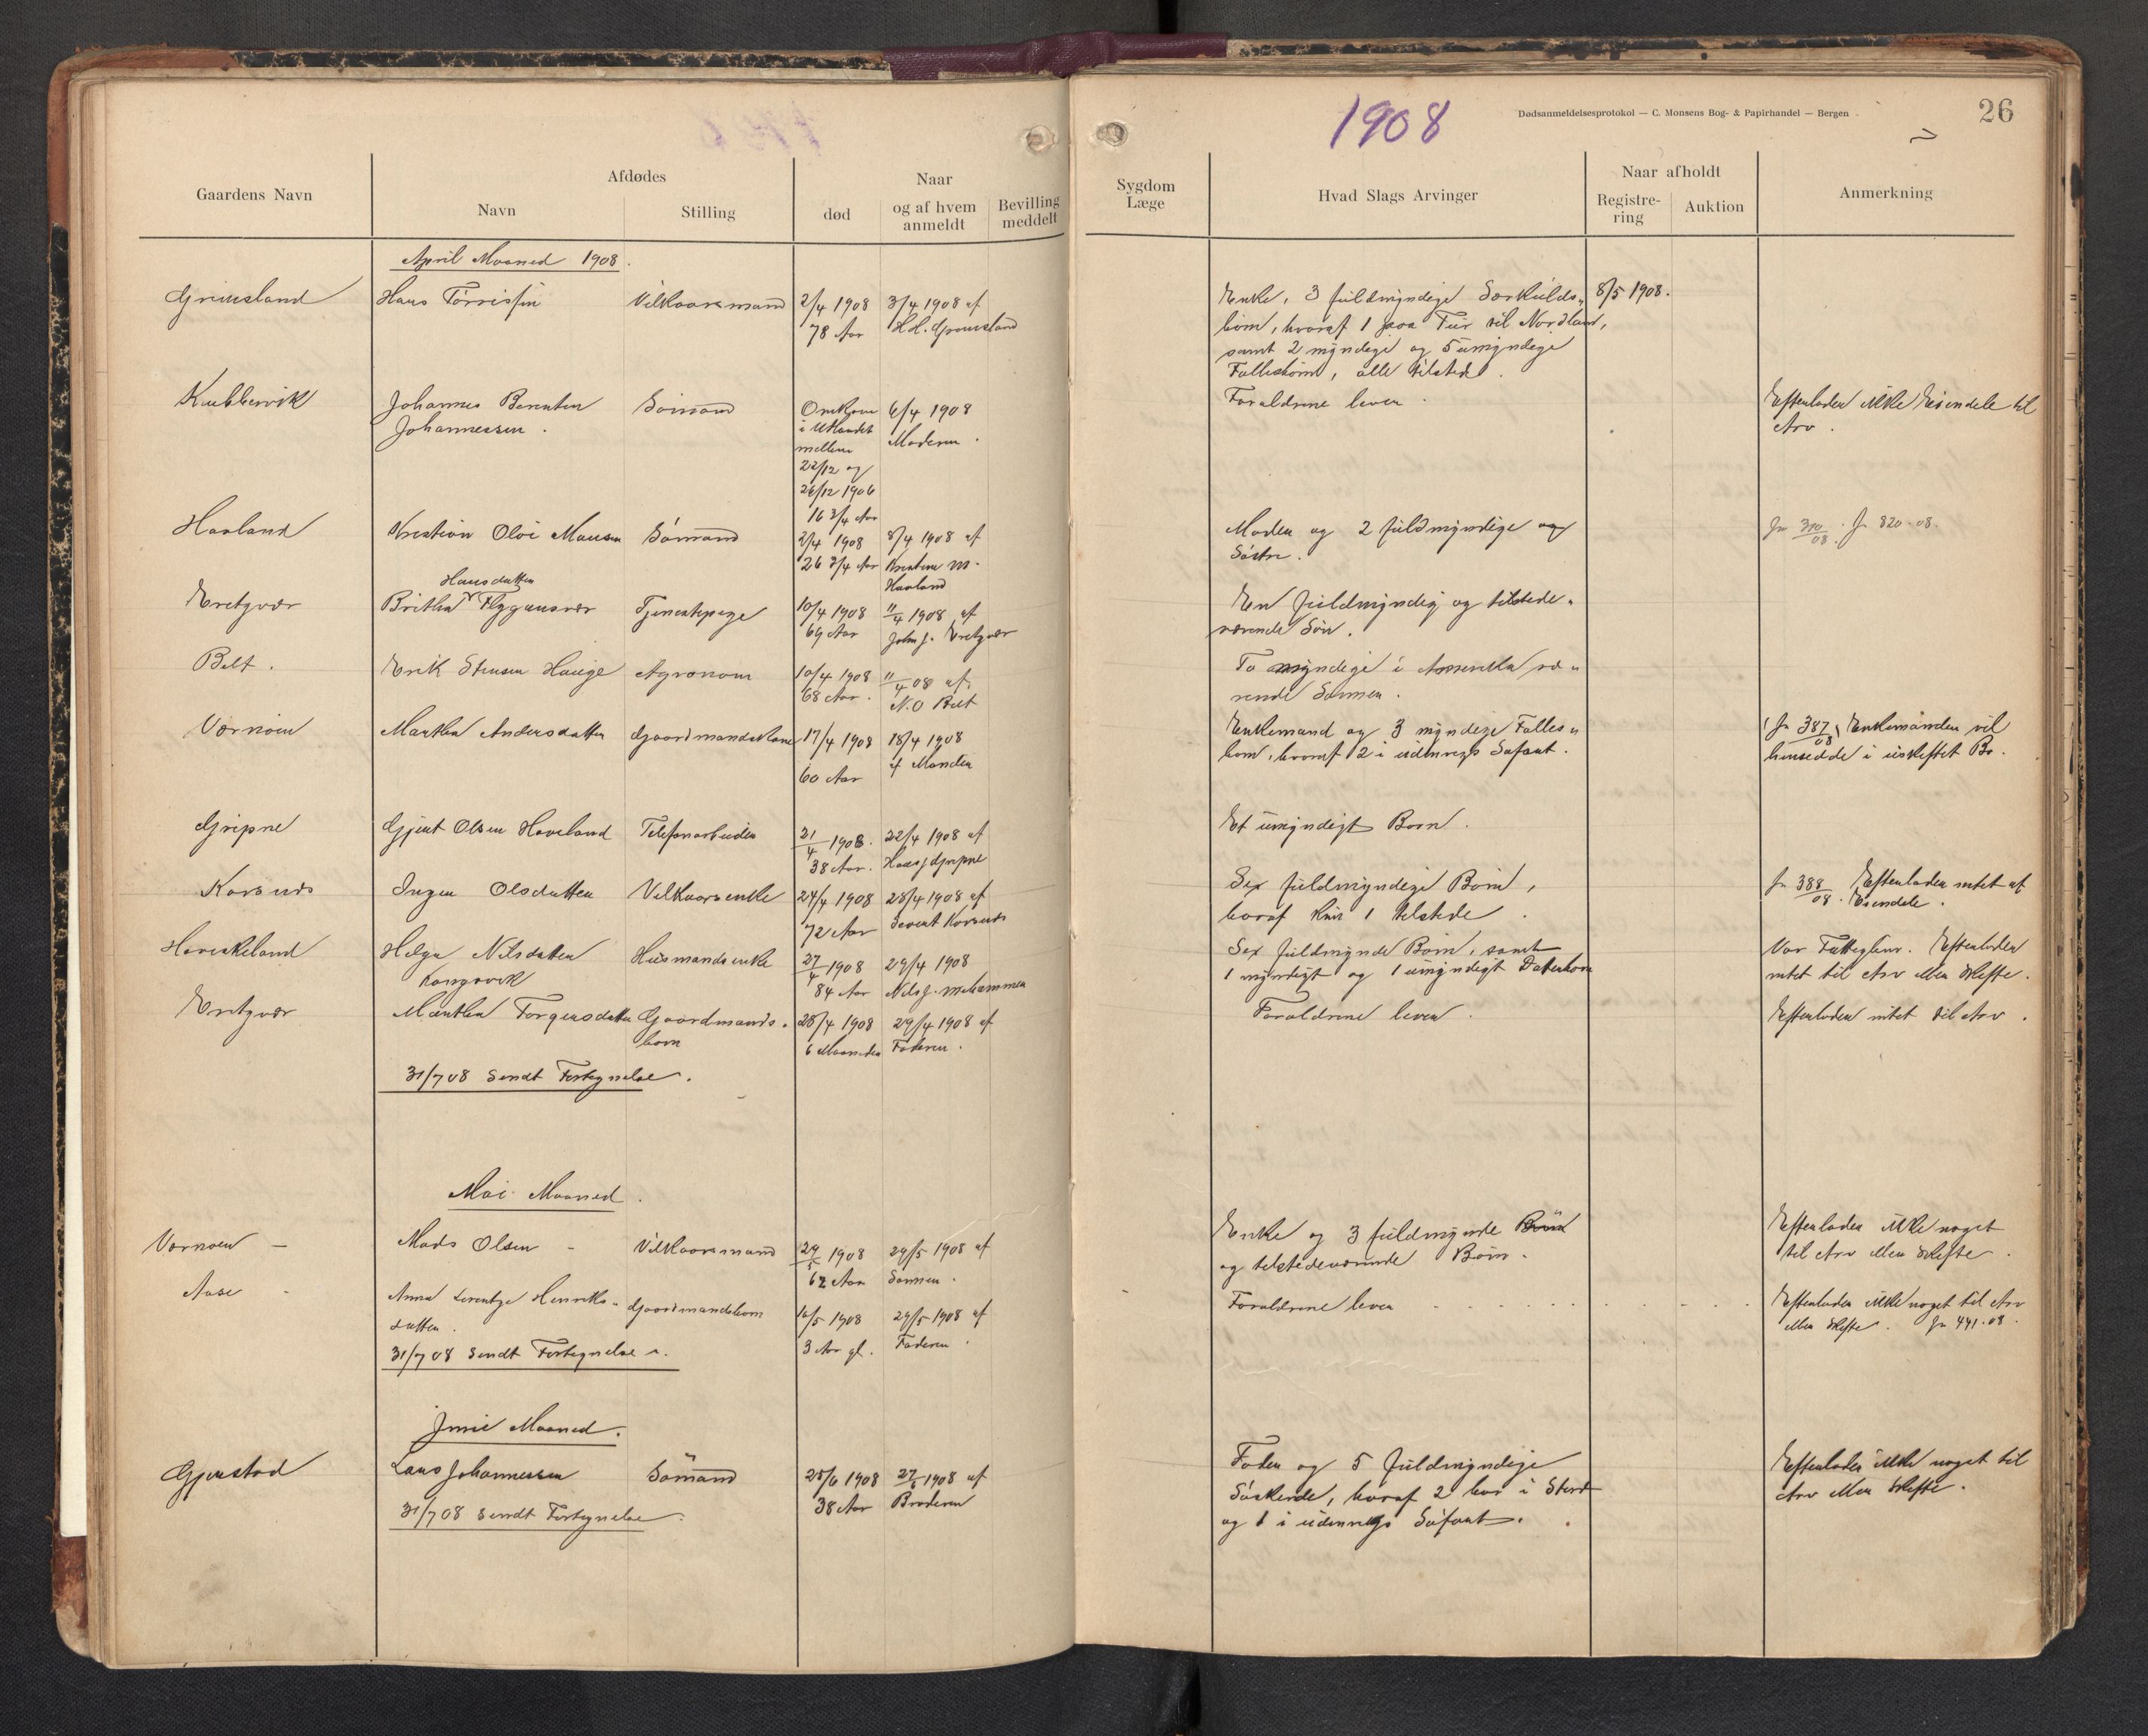 1908
Dødsanmeldelsesprotokol — C. Monsens Bog- & Papirhandel — Bergen
26
Gaardens Navn
Afdødes
Navn
Stilling
Naar
død
og af hvem anmeldt
Bevilling meddelt
Sygdom Læge
Hvad Slags Arvinger
Naar afholdt
Registre-ring
Auktion
Anmerkning
April Maaned 1908.
Grimsland Hans Tørrissen Vilkaarsmand 2/4 1908 3/4 1908 af Enke, 3 fuldmyndige Særkulds- 8/5 1908.
78 Aar H.H. Grimsland børn, hvoraf 1 paa Tur til Nordland,
samt 2 myndige og 5 umyndige
Fællesbørn, alle tilstede.
Kubbervik Johannes Berntsen Sømand Omkom 6/4 1908 Forældrene lever. Efterlader ikke Eiendele til
Johannessen. i Utlandet Moderen. Arv.
mellem
22/12 og
26/12 1906
16 3/4 Aar
Haaland Kristian Olai Monsen Sømand 2/4 1908 8/4 1908 af Moder og 2 fuldmyndige og Jr 310/08. Jr 820-08.
26 3/4 Aar M. Haaland Søstre.
Hansdatter
Eretzvær Britha Flygansvær Tjenestepige 10/4 1908 11/4 1908 af En fuldmyndig og tilstede-
69 Aar John J. Eretzvær værende Søn.
Belt. Erik Stensen Hauge Agronom 10/4 1908 11/4 08 af To myndige i Amerika væ-
68 Aar. N.O Belt rende Sønner.
Værnøen Martha Andersdatter Gaardmandskone 17/4 1908 18/4 1908 Enkemand og 3 myndige Fælles- Jr 387/08 Enkemanden vil
60 Aar af Manden børn, hvoraf 2 i udenrigs Søfart. hensidde i uskiftet Bo.
Gripne Gjert Olsen Haveland Telefonarbeider 21/4 1908. 22/4 1908 af Et umyndigt Barn.
38 Aar. Hans J Gripne
Korsnes Inger Olsdatter Vilkaarsenke 24/4 1908 28/4 1908 af Sex fuldmyndige Børn, Jr 388/08. Efterlader intet af
72 Aar Sevent Korsnes hvoraf kun 1 tilstede. Eiendele.
Haviskeland Helga Nilsdatter Husmandsenke 27/4 1908 29/4 1908 Sex fuldmynde Børn, samt Var Fattiglem. Efterlader
Kongsvik 84 Aar Nils J. 1 myndigt og 1 umyndigt Datterbarn intet til Arv eller Skifte.
Eretzvær Martha Torgersdatter Gaardmands- 28/4 1908 29/4 1908 af Forældrene lever. Efterlader intet til Arv.
barn 6 Maaneder Faderen.
31/7 08 Sendt Fortegnelse.
Mai Maaned.
Værnøen - Mads Olsen - Vilkaarsmand 29/5 1908 29/5 1908 af Enke og 3 fuldmynde Børn Efterlader ikke noget
62 Aar Sønnen. og tilstedeværende Børn. til Arv eller Skifte.
Aase - Anna Lerentze Henriks- Gaardmandsbarn 16/5 1908 29/5 1908 af Forældrene lever Efterlader ikke noget til Arv
datter. 3 Aar gl. Faderen. eller Skifte. Jr 441-08.
31/7 08 Sendt Fortegnelse.
Juni Maaned.
Gjerstad Lars Johannessen Sømand 25/6 1908 27/6 1908 af Fader og 5 fuldmyndige Efterlader ikke noget til
38 Aar Broderen Søskende, hvoraf 2 bor i Stord Arv eller Skifte.
31/7 08 Sendt Fortegnelse. og 1 i udenrigs Søfart.